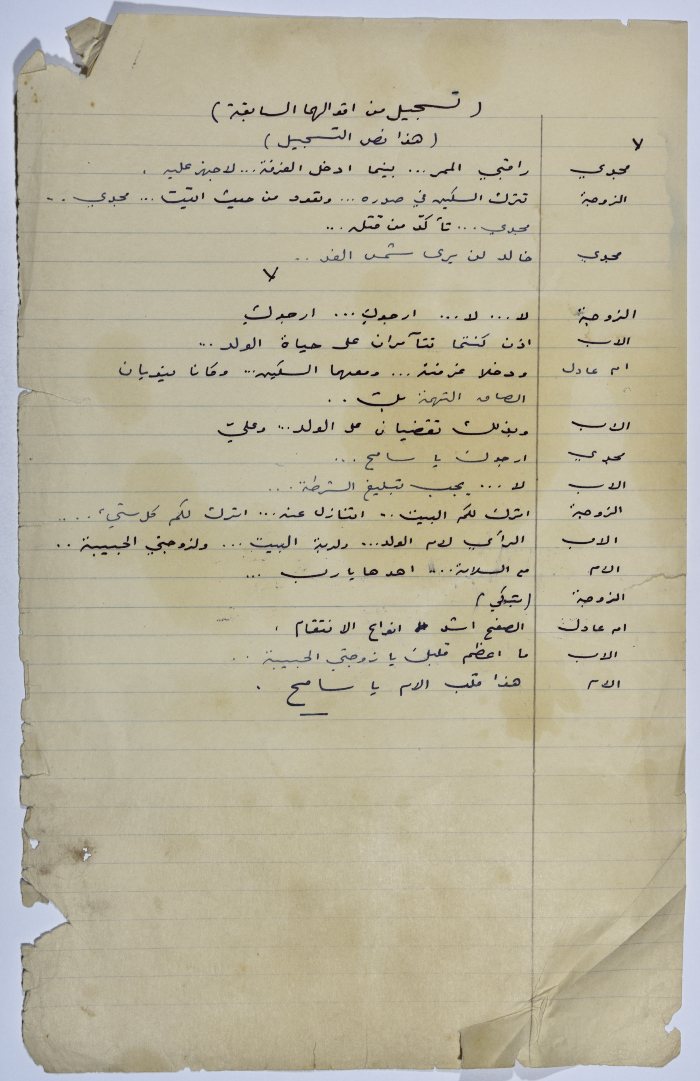 ( تسجيل من اقوالهما السابقة )
( هذا نص التسجيل )
مجدي راقبي الممر ... بينما ادخل الغرفة ... لاجهز عليه .
الزوجة تترك السكين في صدره ... ونعود من حيث اتيت ... مجدي ..
مجدي ... تأكد من قتله ...
مجدي خالد لن يرى شمس الغد ..
الزوجة لا ... لا ... ارجوك ... ارجوك
الاب اذن كنتما تتآمران على حياة الولد ...
ام عادل ودخلا غرفته ... ومعهما السكين ... وكانا ينويان
الصاق التهمة بك ..
الاب وبذلك تقضيان على الولد ... وعليّ
مجدي ارجوك يا سامح ...
الاب لا ... يجب تبليغ الشرطة ...
الزوجة اترك لكم البيت ... اتنازل عنه ... اترك لكم كل شيء ....
الاب الرأي لام الولد ... ولربة البيت ... ولزوجتي الحبيبة ..
الام مع السلامة ... اهدها يا رب ...
الزوجة ( تبكي )
ام عادل الصفح اشد انواع الانتقام .
الاب ما اعظم قلبك يا زوجتي الحبيبة ..
الام هذا قلب الام يا سامح .